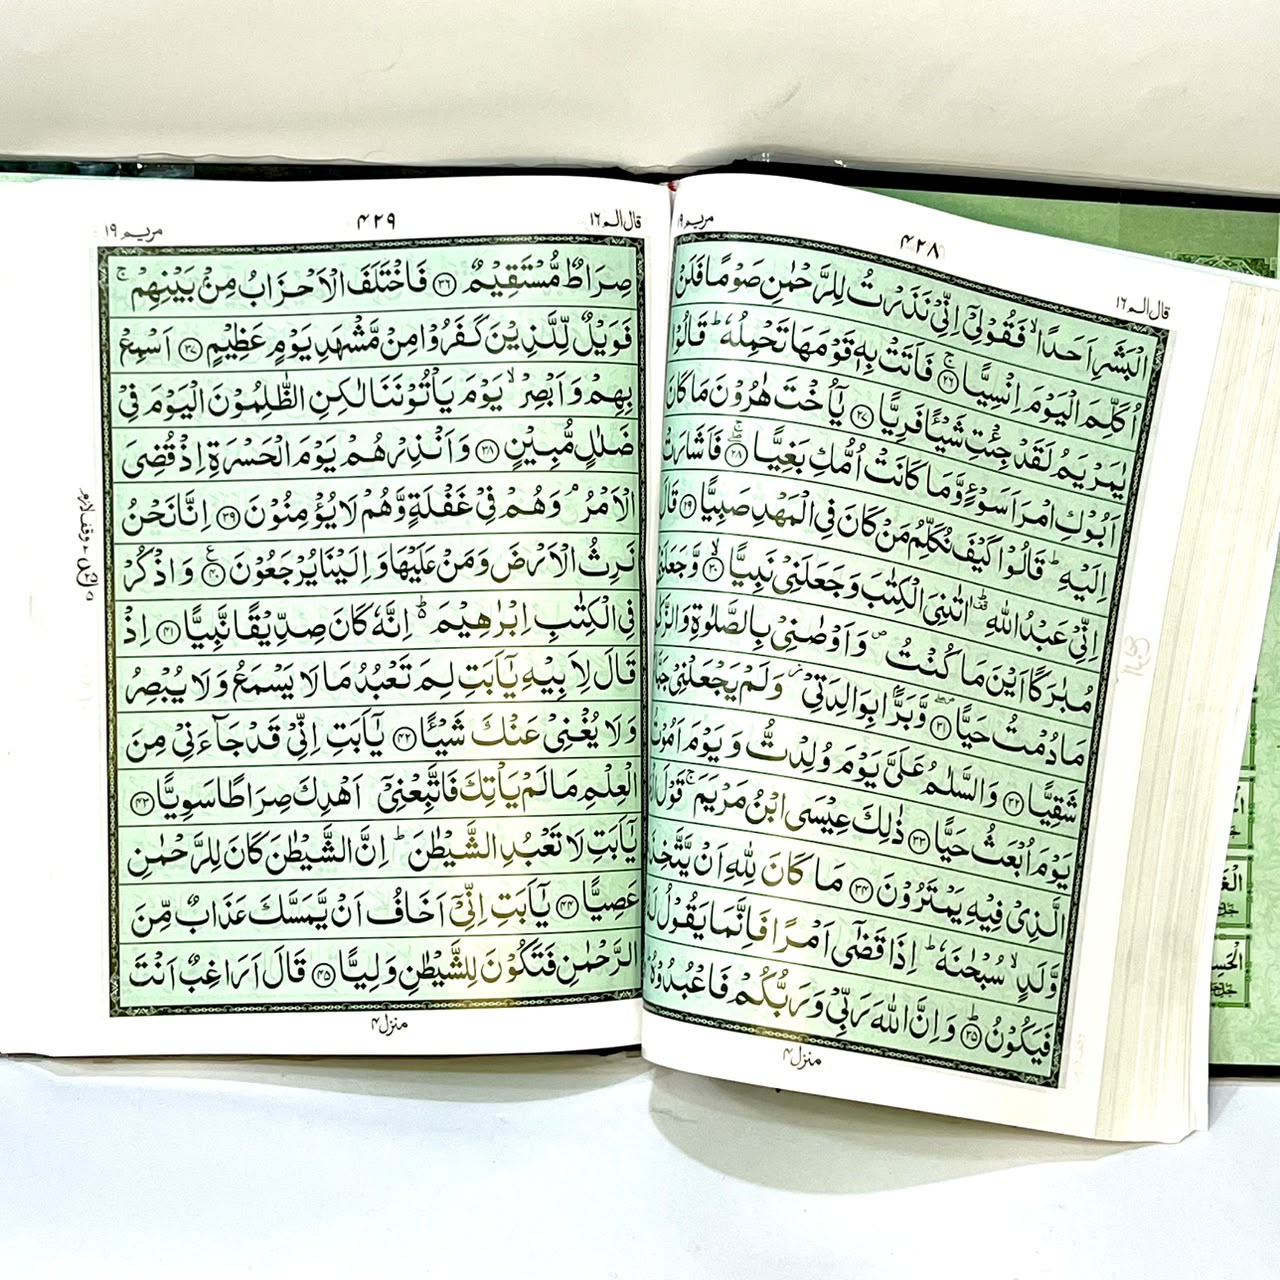 قال الم ١٦
٤٢٨
مريم ١٩
الْبَشَرِ اَحَدًا ۙ فَقُوْلِيْۤ اِنِّيْ نَذَرْتُ لِلرَّحْمٰنِ صَوْمًا فَلَنْ
اُكَلِّمَ الْيَوْمَ اِنْسِيًّا ۚ ﴿٢٦﴾ فَاَتَتْ بِهٖ قَوْمَهَا تَحْمِلُهٗ ؕ قَالُوْا
يٰمَرْيَمُ لَقَدْ جِئْتِ شَيْـًٔا فَرِيًّا ﴿٢٧﴾ يٰۤاُخْتَ هٰرُوْنَ مَا كَانَ
اَبُوْكِ امْرَاَ سَوْءٍ وَّمَا كَانَتْ اُمُّكِ بَغِيًّا ﴿٢٨﴾ فَاَشَارَتْ
اِلَيْهِ ؕ قَالُوْا كَيْفَ نُكَلِّمُ مَنْ كَانَ فِي الْمَهْدِ صَبِيًّا ﴿٢٩﴾ قَالَ
اِنِّيْ عَبْدُ اللّٰهِ ؕ اٰتٰىنِيَ الْكِتٰبَ وَجَعَلَنِيْ نَبِيًّا ۙ ﴿٣٠﴾ وَّجَعَلَنِيْ
مُبٰرَكًا اَيْنَ مَا كُنْتُ ۪ وَاَوْصٰنِيْ بِالصَّلٰوةِ وَالزَّ
مَا دُمْتُ حَيًّا ﴿٣١﴾ وَّبَرًّۢا بِوَالِدَتِيْ ؗ وَلَمْ يَجْعَلْنِيْ
شَقِيًّا ﴿٣٢﴾ وَالسَّلٰمُ عَلَيَّ يَوْمَ وُلِدْتُّ وَيَوْمَ اَمُوْتُ
يَوْمَ اُبْعَثُ حَيًّا ﴿٣٣﴾ ذٰلِكَ عِيْسَى ابْنُ مَرْيَمَ ۚ قَوْلَ
الَّذِيْ فِيْهِ يَمْتَرُوْنَ ﴿٣٤﴾ مَا كَانَ لِلّٰهِ اَنْ يَّتَّخِذَ
وَّلَدٍ ۙ سُبْحٰنَهٗ ؕ اِذَا قَضٰۤى اَمْرًا فَاِنَّمَا يَقُوْلُ
فَيَكُوْنُ ؕ ﴿٣٥﴾ وَاِنَّ اللّٰهَ رَبِّيْ وَرَبُّكُمْ فَاعْبُدُوْهُ
منزل ٤
قال الم ١٦
٤٢٩
مريم ١٩
صِرَاطٌ مُّسْتَقِيْمٌ ﴿٣٦﴾ فَاخْتَلَفَ الْاَحْزَابُ مِنْۢ بَيْنِهِمْ ۚ
فَوَيْلٌ لِّلَّذِيْنَ كَفَرُوْا مِنْ مَّشْهَدِ يَوْمٍ عَظِيْمٍ ﴿٣٧﴾ اَسْمِعْ
بِهِمْ وَاَبْصِرْ ۙ يَوْمَ يَاْتُوْنَنَا لٰكِنِ الظّٰلِمُوْنَ الْيَوْمَ فِيْ
ضَلٰلٍ مُّبِيْنٍ ﴿٣٨﴾ وَاَنْذِرْهُمْ يَوْمَ الْحَسْرَةِ اِذْ قُضِيَ
الْاَمْرُ ۘ وَهُمْ فِيْ غَفْلَةٍ وَّهُمْ لَا يُؤْمِنُوْنَ ﴿٣٩﴾ اِنَّا نَحْنُ
نَرِثُ الْاَرْضَ وَمَنْ عَلَيْهَا وَاِلَيْنَا يُرْجَعُوْنَ ﴿٤٠﴾ وَاذْكُرْ
فِي الْكِتٰبِ اِبْرٰهِيْمَ ؕ اِنَّهٗ كَانَ صِدِّيْقًا نَّبِيًّا ﴿٤١﴾ اِذْ
قَالَ لِاَبِيْهِ يٰۤاَبَتِ لِمَ تَعْبُدُ مَا لَا يَسْمَعُ وَلَا يُبْصِرُ
وَلَا يُغْنِيْ عَنْكَ شَيْـًٔا ﴿٤٢﴾ يٰۤاَبَتِ اِنِّيْ قَدْ جَآءَنِيْ مِنَ
الْعِلْمِ مَا لَمْ يَاْتِكَ فَاتَّبِعْنِيْۤ اَهْدِكَ صِرَاطًا سَوِيًّا ﴿٤٣﴾
يٰۤاَبَتِ لَا تَعْبُدِ الشَّيْطٰنَ ؕ اِنَّ الشَّيْطٰنَ كَانَ لِلرَّحْمٰنِ
عَصِيًّا ﴿٤٤﴾ يٰۤاَبَتِ اِنِّيْۤ اَخَافُ اَنْ يَّمَسَّكَ عَذَابٌ مِّنَ
الرَّحْمٰنِ فَتَكُوْنَ لِلشَّيْطٰنِ وَلِيًّا ﴿٤٥﴾ قَالَ اَرَاغِبٌ اَنْتَ
منزل ٤